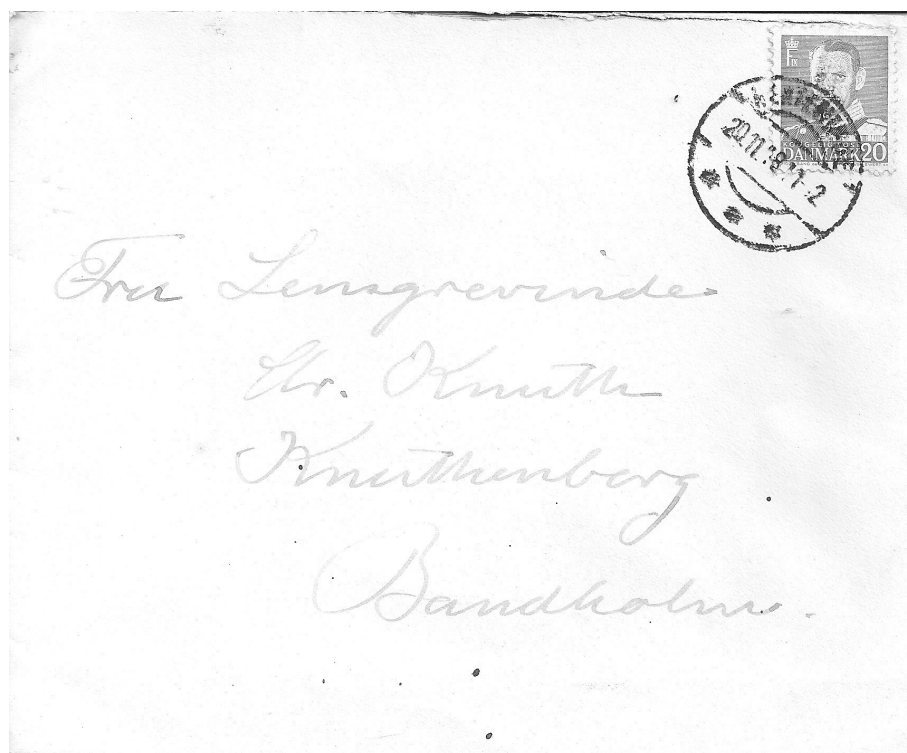 F IX
KONGELIG POST
DANMARK 20
Fru Lensgrevinde
Chr. Knuth
Knuthenborg
Bandholm.